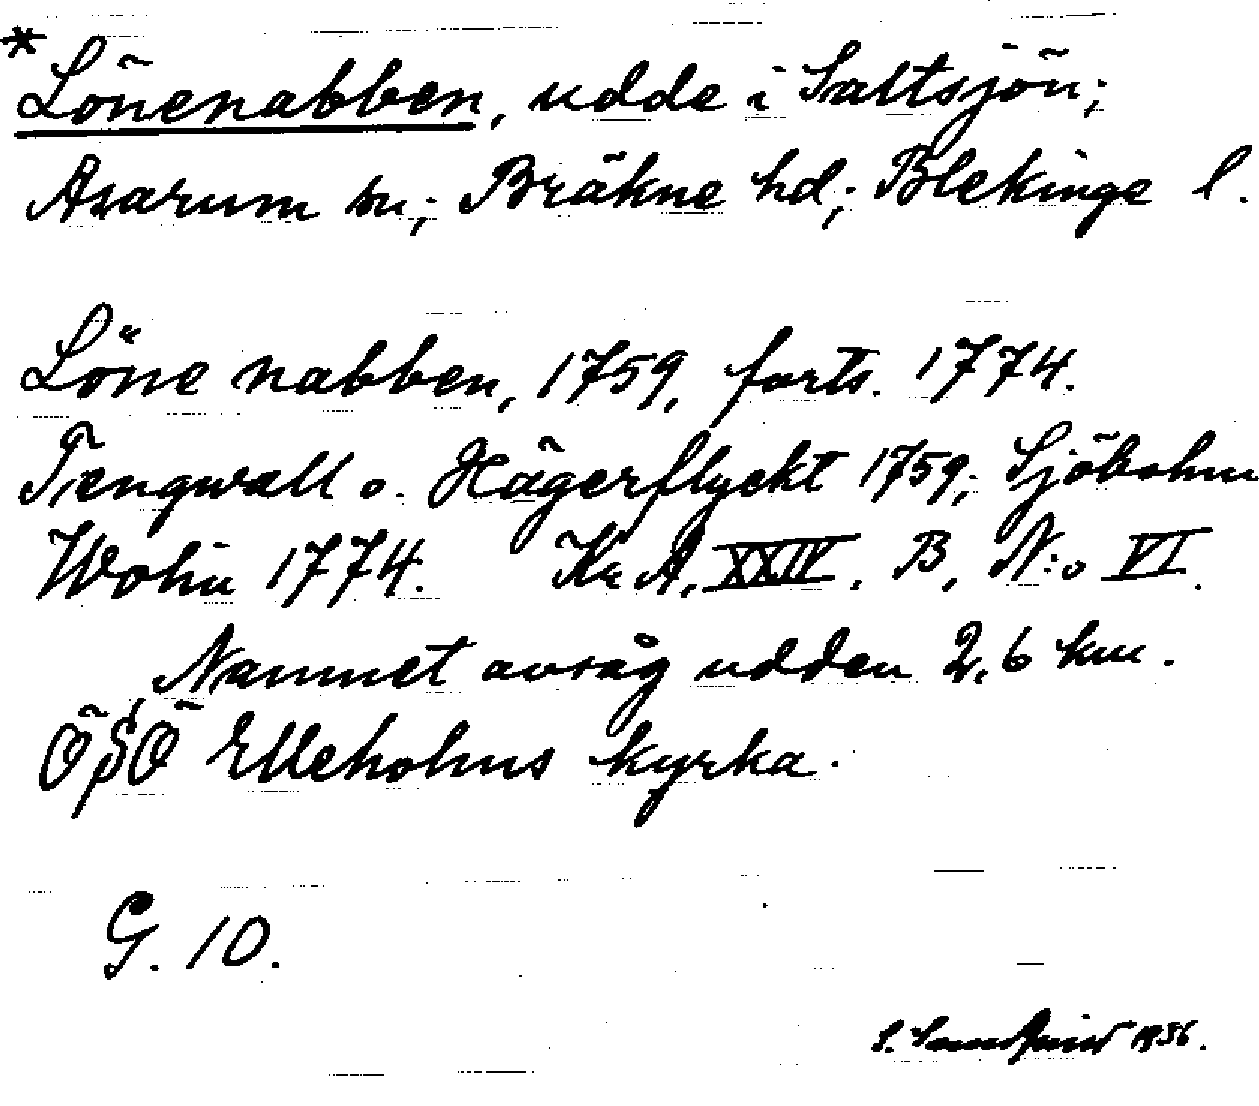 *Lönenabben, udde i Saltsjön;
Asarum sn; Bräkne hd; Blekinge l.
Löne nabben, 1759, forts. 1774.
Tengwall o. Hägerflyckt 1759; Sjöbohm
Wohn 1774. Kr. A. XXIV. B, N:o VI.
Namnet avsåg udden 2,6 km.
ÖSÖ Elleholms kyrka.
G. 10.
S. 1936.